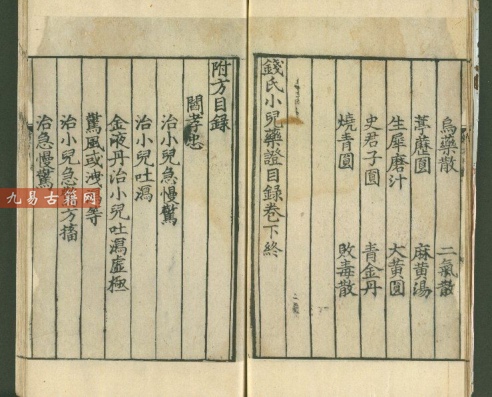 烏藥散 二氣散
葶藶圓 麻黃湯
生犀磨汁 大黃圓
史君子圓 青金丹
燒青圓 敗毒散
錢氏小兒藥證目錄卷下終
附方目錄
閻孝忠
治小兒急慢驚
治小兒吐瀉
金液丹治小兒吐瀉虛極
驚風或洩等
治小兒急方搐
治急慢驚
九易古籍网